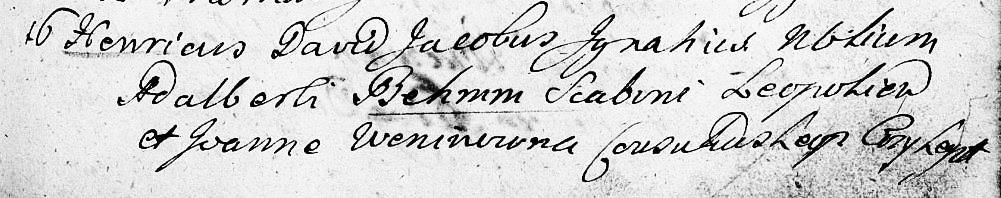 16 Henricus David Jacobus Ignatius Nblium
Adalberti Behmm Scabini Leopolien
et Joanne Weninowna Consulis Leop